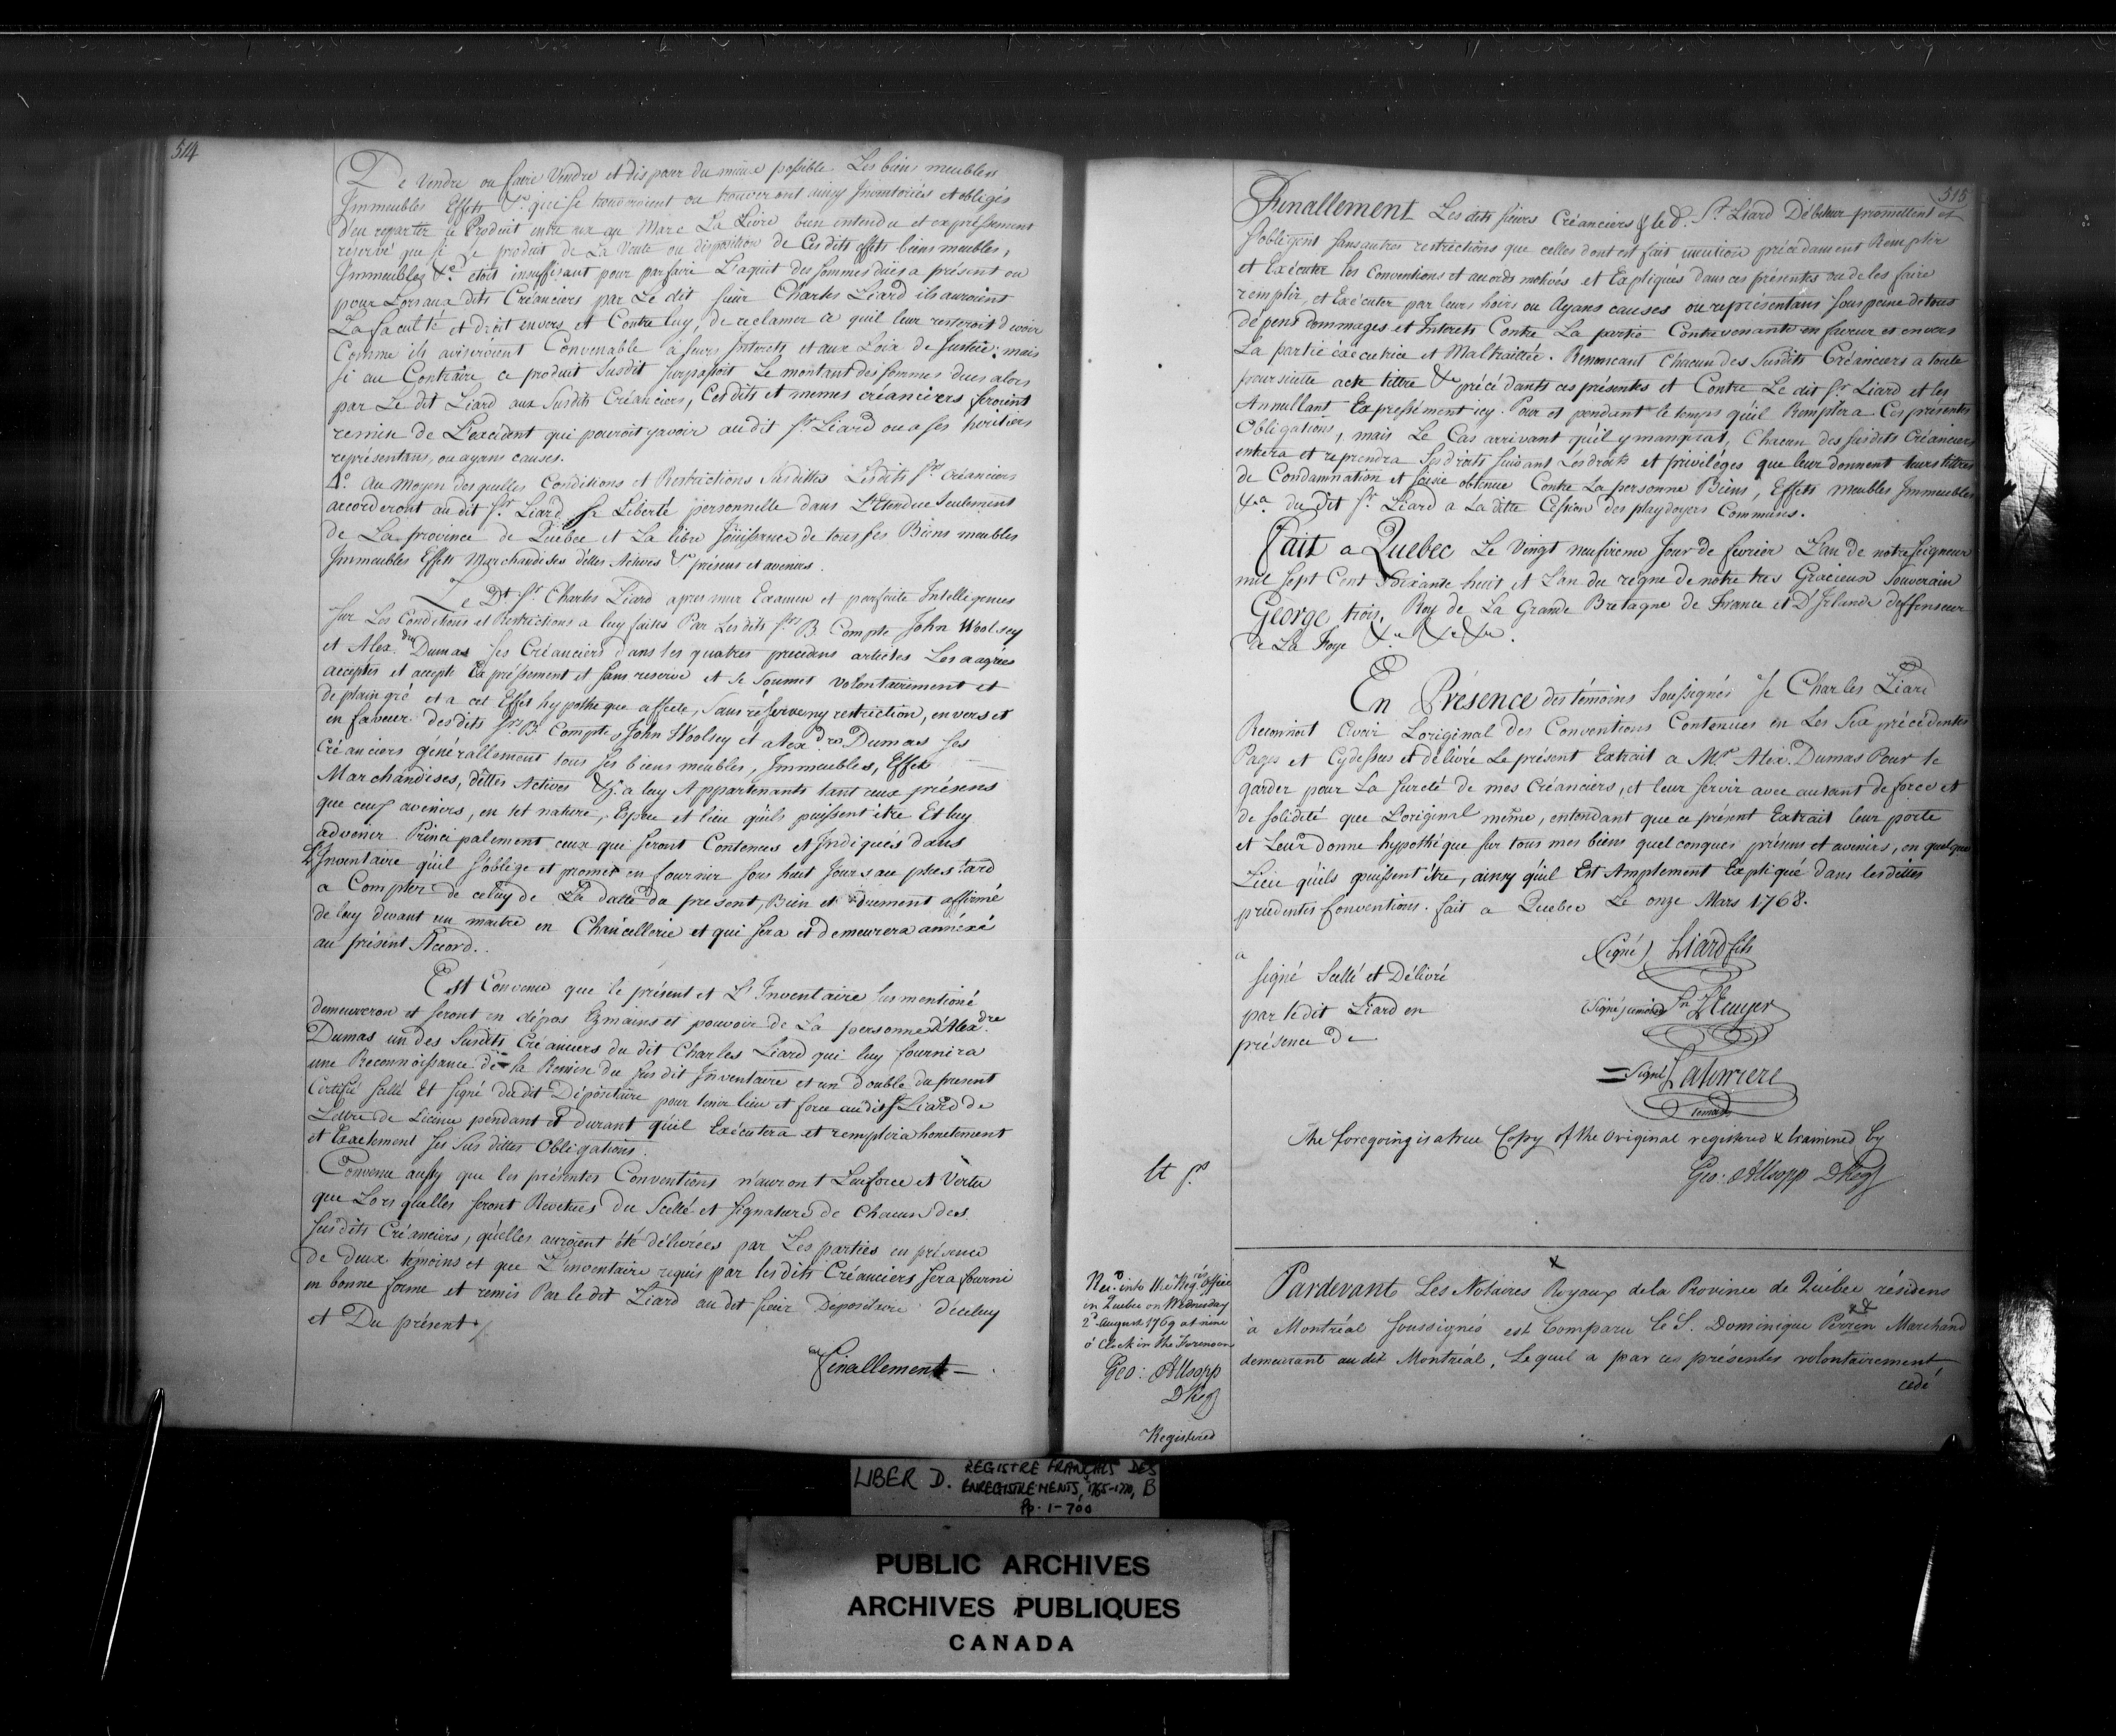 514
De Vendre ou faire Vendre et disposer du mieux possible Les biens meubles
Immeubles Effets &c. qui se trouveroient ou trouveront ainsy Inventoriés et obligés
d'en repartir le Produit entre eux au Marc La Livre bien entendu et expressement
reservé que si le produit de La Vente ou disposition de Ces dits effets biens meubles,
Immeubles &c. etoit insuffisant pour parfaire L'aquit des sommes dües a présent ou
pour Lors aux dits Créanciers par Le dit sieur Charles Liard ils auroient
La faculté et droit envers et Contre luy, de reclamer ce quil leur resteroit devoir
Comme ils aviseroient Convenable à leurs Interets et aux Loix de Justice; mais
si au Contraire ce produit susdit surpassoit Le montant des sommes dues alors
par Le dit Liard aux Susdits Créanciers, Ces dits et memes créanciers feroient
remise de L'excédent qui pouroit y avoir au dit Sr. Liard ou a ses héritiers
représentans, ou ayans causes.
4o. Au moyen des quelles Conditions et Restrictions Susdittes Les dits Srs. Créanciers
accorderont au dit Sr. Liard sa Liberté personnelle dans L'Etendue Seulement
de La province de Québec et La libre Joüissance de tous ses Biens meubles
Immeubles Effets Marchandises dêttes Actives &c. présens et avenirs.
Le Dt. Sr. Charles Liard apres mur Examen et parfaite Intelligences
sur Les Conditions et Restrictions a luy faites Par Les dits Srs. B. Compte John Woolsey
et Alexdre. Dumas ses Créanciers dans les quatres precedens articles Les a agréés
acceptés et accepte Expréssement et sans reserve et se soumet volontairement et
de plain gré et a cet Effet hypotheque affecte, sans réserve ny restriction, envers et
en faveur des dits Srs. B. Compte, John Woolsey et Alexdre. Dumas ses
Créanciers générallement tous ses biens meubles, Immeubles, Effets
Marchandises, dêttes Actives &c. a luy Appartenants tant ceux présens
que ceux avenirs, en tel nature, Espece et lieu quils puissent être Et luy
advenir Principalement ceux qui seront Contenus et Indiqués dans
L'Inventaire qu'il s'oblige et promet en fournir sous huit Jours au plus tard
a Compter de celuy de La datte du present, Bien et düement affirmé
de luy devant un maitre en Chancellerie et qui sera et demeurera annéxé
au présent Accord..
Est Convenu que le présent et L'Inventaire sus mentioné
demeureron et seront en dépos Ez mains et pouvoir de La personne d'Alexdre.
Dumas un des Susdits Créanciers du dit Charles Liard qui luy fournira
une Reconnoissance de la Remise du susdit Inventaire et un double du présent
Certifié scellé Et signé du dit Dépositaire pour tenir lieu et force audit Sr Liard de
Lettre de Licence pendant et durant qu'il Exécutera et remplira honetement
et Exactement ses Sus dittes Obligations.
Convenu aussy que les présentes Conventions n'auront Leur force et Vertu
que Lors quelles seront Revetues du Scellé et signature de Chacun des
susdits Créanciers, qu'elles auroient été délivrées par Les parties en présence
de deux témoins et que L'inventaire requis par les dits Créanciers sera fourni
en bonne forme et remis Par le dit Liard au dit sieur Depositaire d'iceluy
et Du présent ./.
Finallement
515
Finallement Les dits sieurs Créanciers & le d. Sr. Liard Débiteur promettent et
s'obligent sans autres restrictions que celles dont est fait mention précédament Remplir
et Exécuter les Conventions et accords motivés et Expliqués dans ces présentes ou de les faire
remplir, et Exécuter par leurs hoirs ou Ayans causes ou representans sous peine de tous
dépens dommages et Interets Contre La partie Contrevenante en faveur et envers
La partie éxécutrice et Maltraittée. Renoncant Chacun des Susdits Créanciers a toute
poursuitte acte tittre &c précédants ces présentes et Contre Le dit Sr. Liard et les
Annullant Expressément icy. Pour et pendant le temps qu'il Remplira Ces présentes
Obligations, mais Le Cas arrivant qu'il y manquat, Chacun des susdits Créanciers
entrera et reprendra ses droits suivant Les droits et priviléges que leur donnent leurs tittres
de Condamnation et saisie obtenue Contre La personne Biens, Effets meubles Immeubles
&ca. du dit Sr. Liard a La ditte Cession des playdoyers Communs.
Fait a Quebec Le Vingt neufieme Jour de fevrier L'an de notre seigneur
mil sept Cent Soixante huit et L'an du regne de notre tres Gracieux Souverain
George trois, Roy de La Grande Bretagne de France et D'Irlande deffenseur
de La Foye &c. &c &c.
En Présence des témoins Soussignés Je Charles Liard
Reconnoit avoir L'original des Conventions Contenues en Les Six précédentes
Pages et Cydessus et délivré Le présent Extrait a Mr. Alex. Dumas Pour le
garder pour La sureté de mes Créanciers, et leur servir avec autant de force et
de solidité que L'original même, entendant que ce présent Extrait leur porte
et Leur donne hypothéque sur tous mes biens quelconques présens et avenirs, en quelque
Lieu qu'ils puissent être, ainsy qu'il Est Amplement Expliqué dans lesdittes
precedentes Conventions. fait a Quebec Le onze Mars 1768.
(signé) Liard fils
signé Scellé et Délivré
par le dit Liard en
présence de
=signé Laterriere
temoin
The foregoing is a true Copy of the Original registered & Examined by
Geo: Allsopp DReg
Recd. into the Regrs. Office
in Quebec on Wednesday
2d. August 1769 at nine
o'Clock in the Forenoon
Geo: Allsopp
DReg
Registered
Pardevant Les Notaires Royaux de la Province de Québec résidens
à Montréal soussignés est Comparu le S. Dominique Perrin Marchand
demeurant au dit Montréal, Lequel a par ces présentes volontairement
cedé
LIBER D. REGISTRE FRANÇAIS DES
ENREGISTREMENTS, 1765-1770, B
Pp. 1-700
PUBLIC ARCHIVES
ARCHIVES PUBLIQUES
CANADA